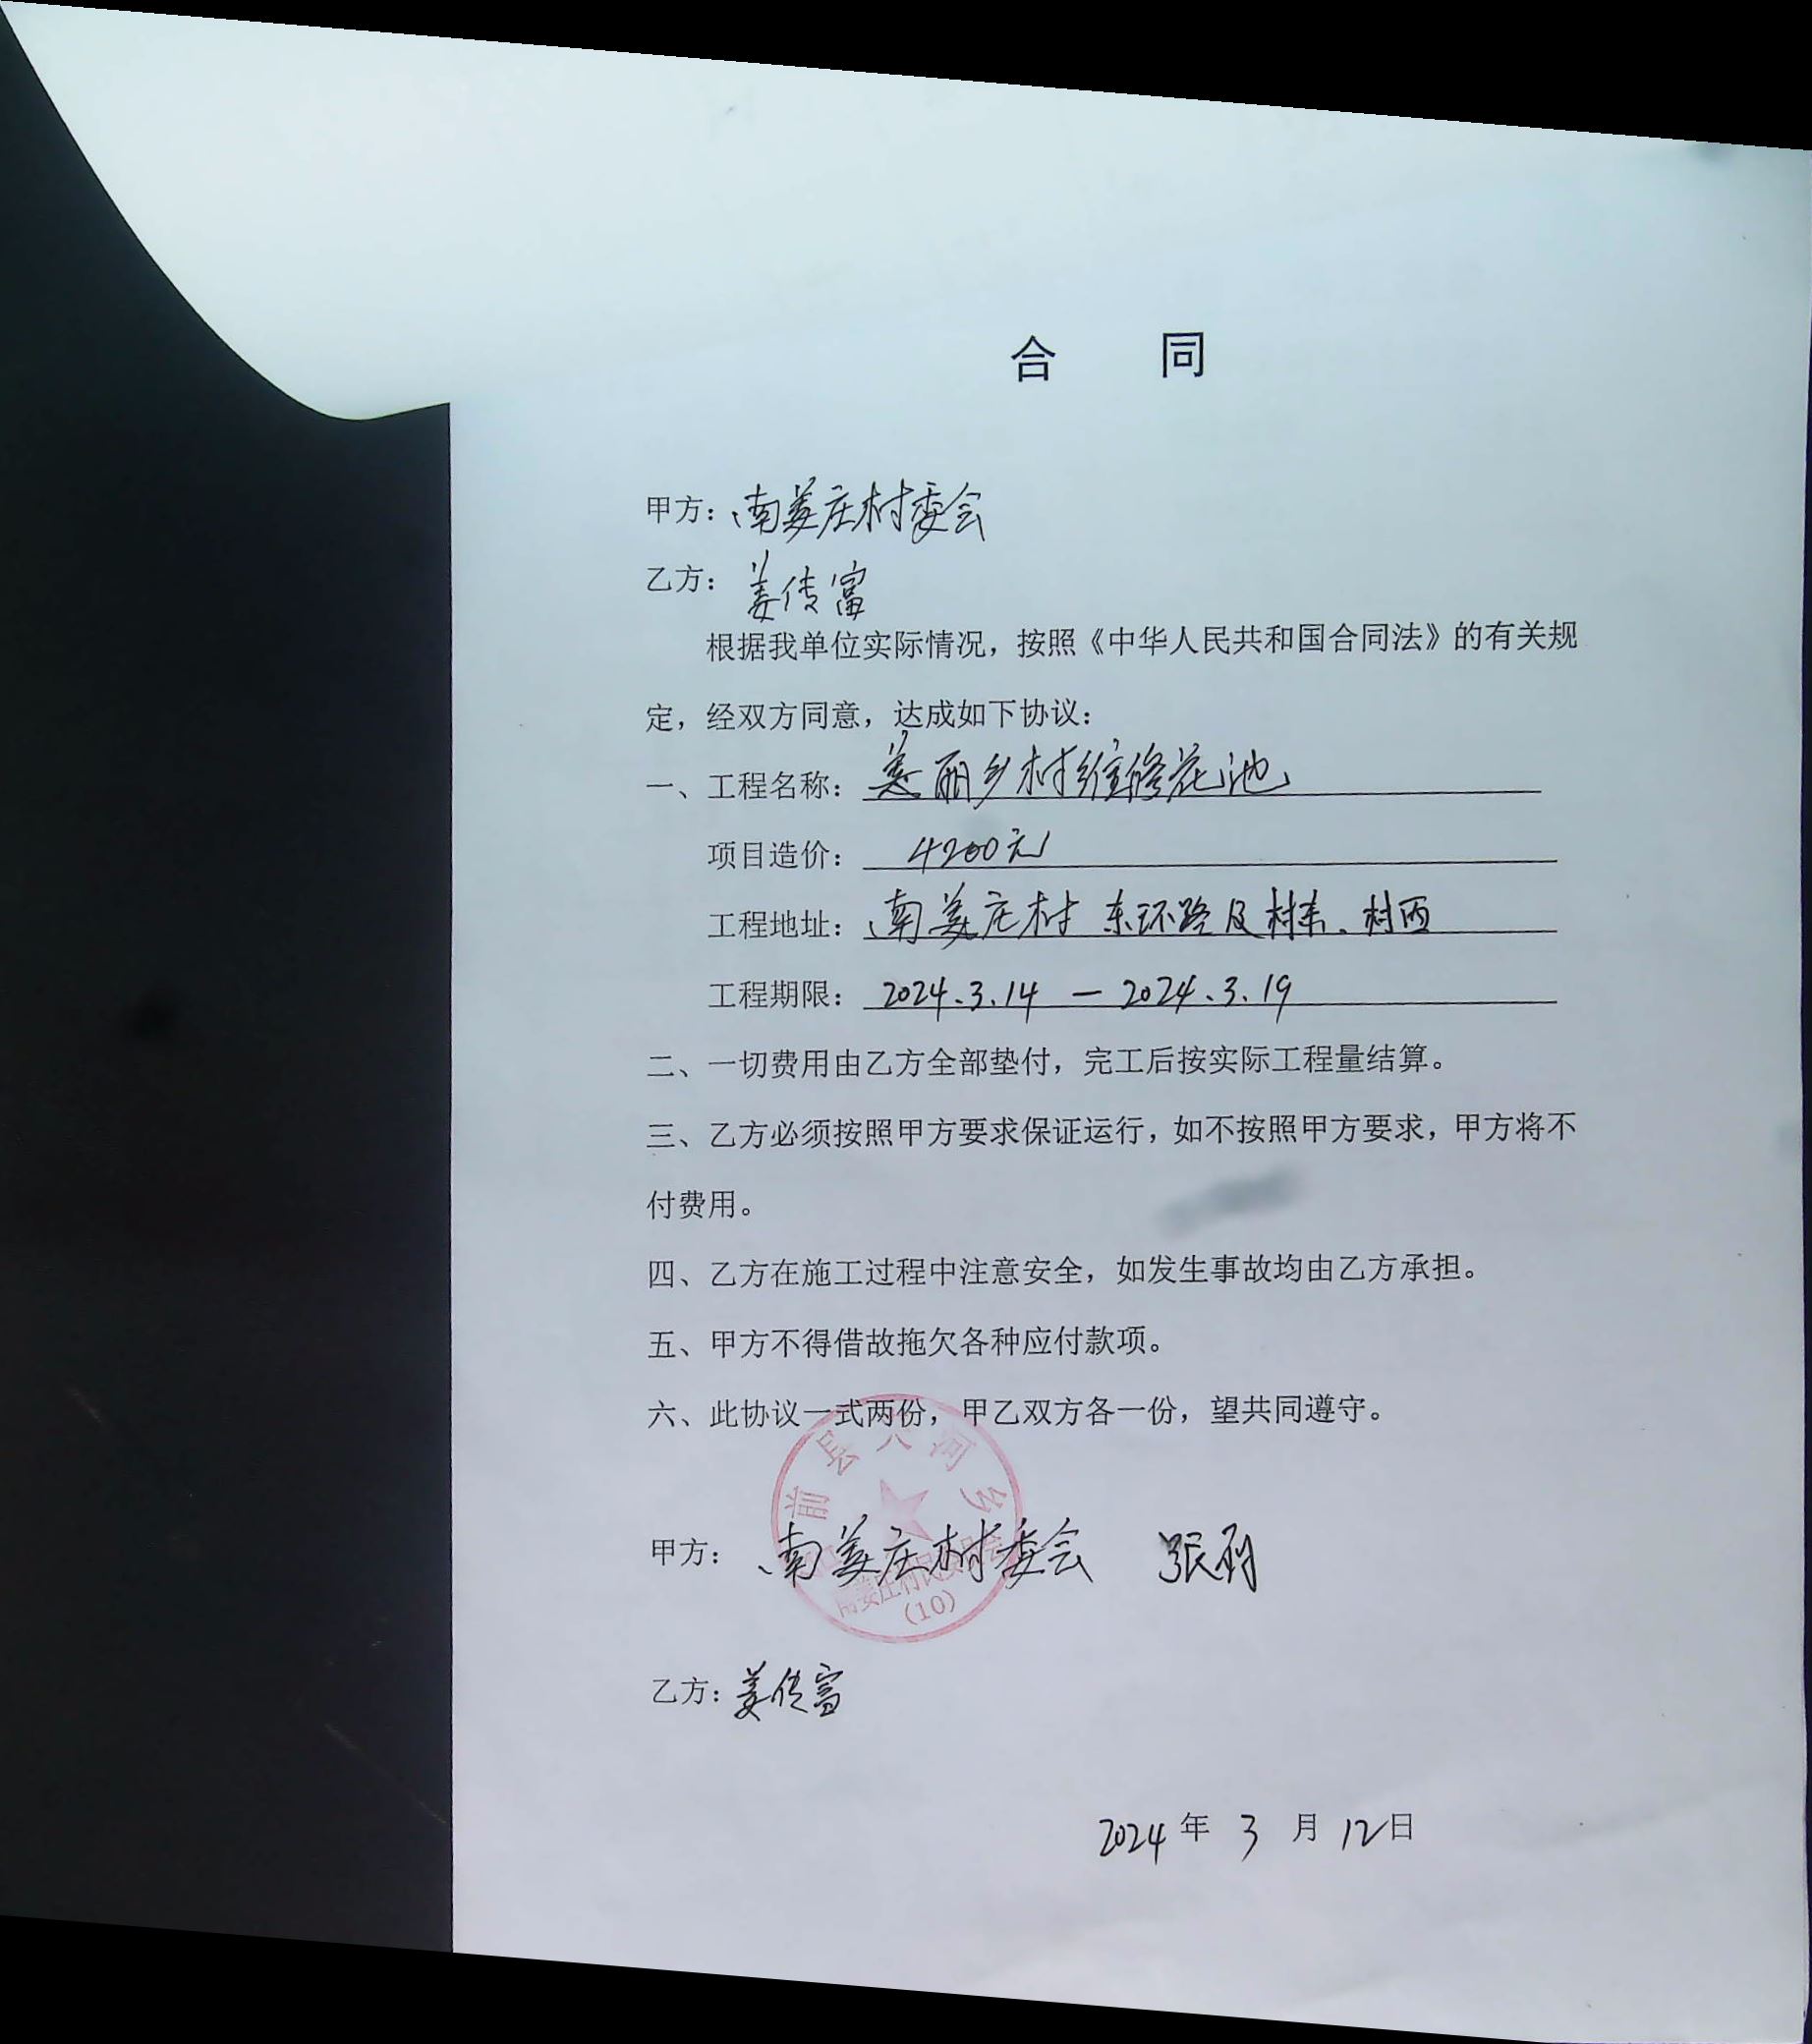 合 同
甲方：南姜庄村委会
乙方：姜传富
根据我单位实际情况，按照《中华人民共和国合同法》的有关规
定，经双方同意，达成如下协议：
一、工程名称：美丽乡村维修花池
项目造价：4200元
工程地址：南姜庄村 东环路及村东、村西
工程期限：2024.3.14 — 2024.3.19
二、一切费用由乙方全部垫付，完工后按实际工程量结算。
三、乙方必须按照甲方要求保证运行，如不按照甲方要求，甲方将不
付费用。
四、乙方在施工过程中注意安全，如发生事故均由乙方承担。
五、甲方不得借故拖欠各种应付款项。
六、此协议一式两份，甲乙双方各一份，望共同遵守。
前县 河乡
甲方：南姜庄村委会 张
南姜庄村民委员会
(10)
乙方：姜传富
2024 年 3 月 12 日